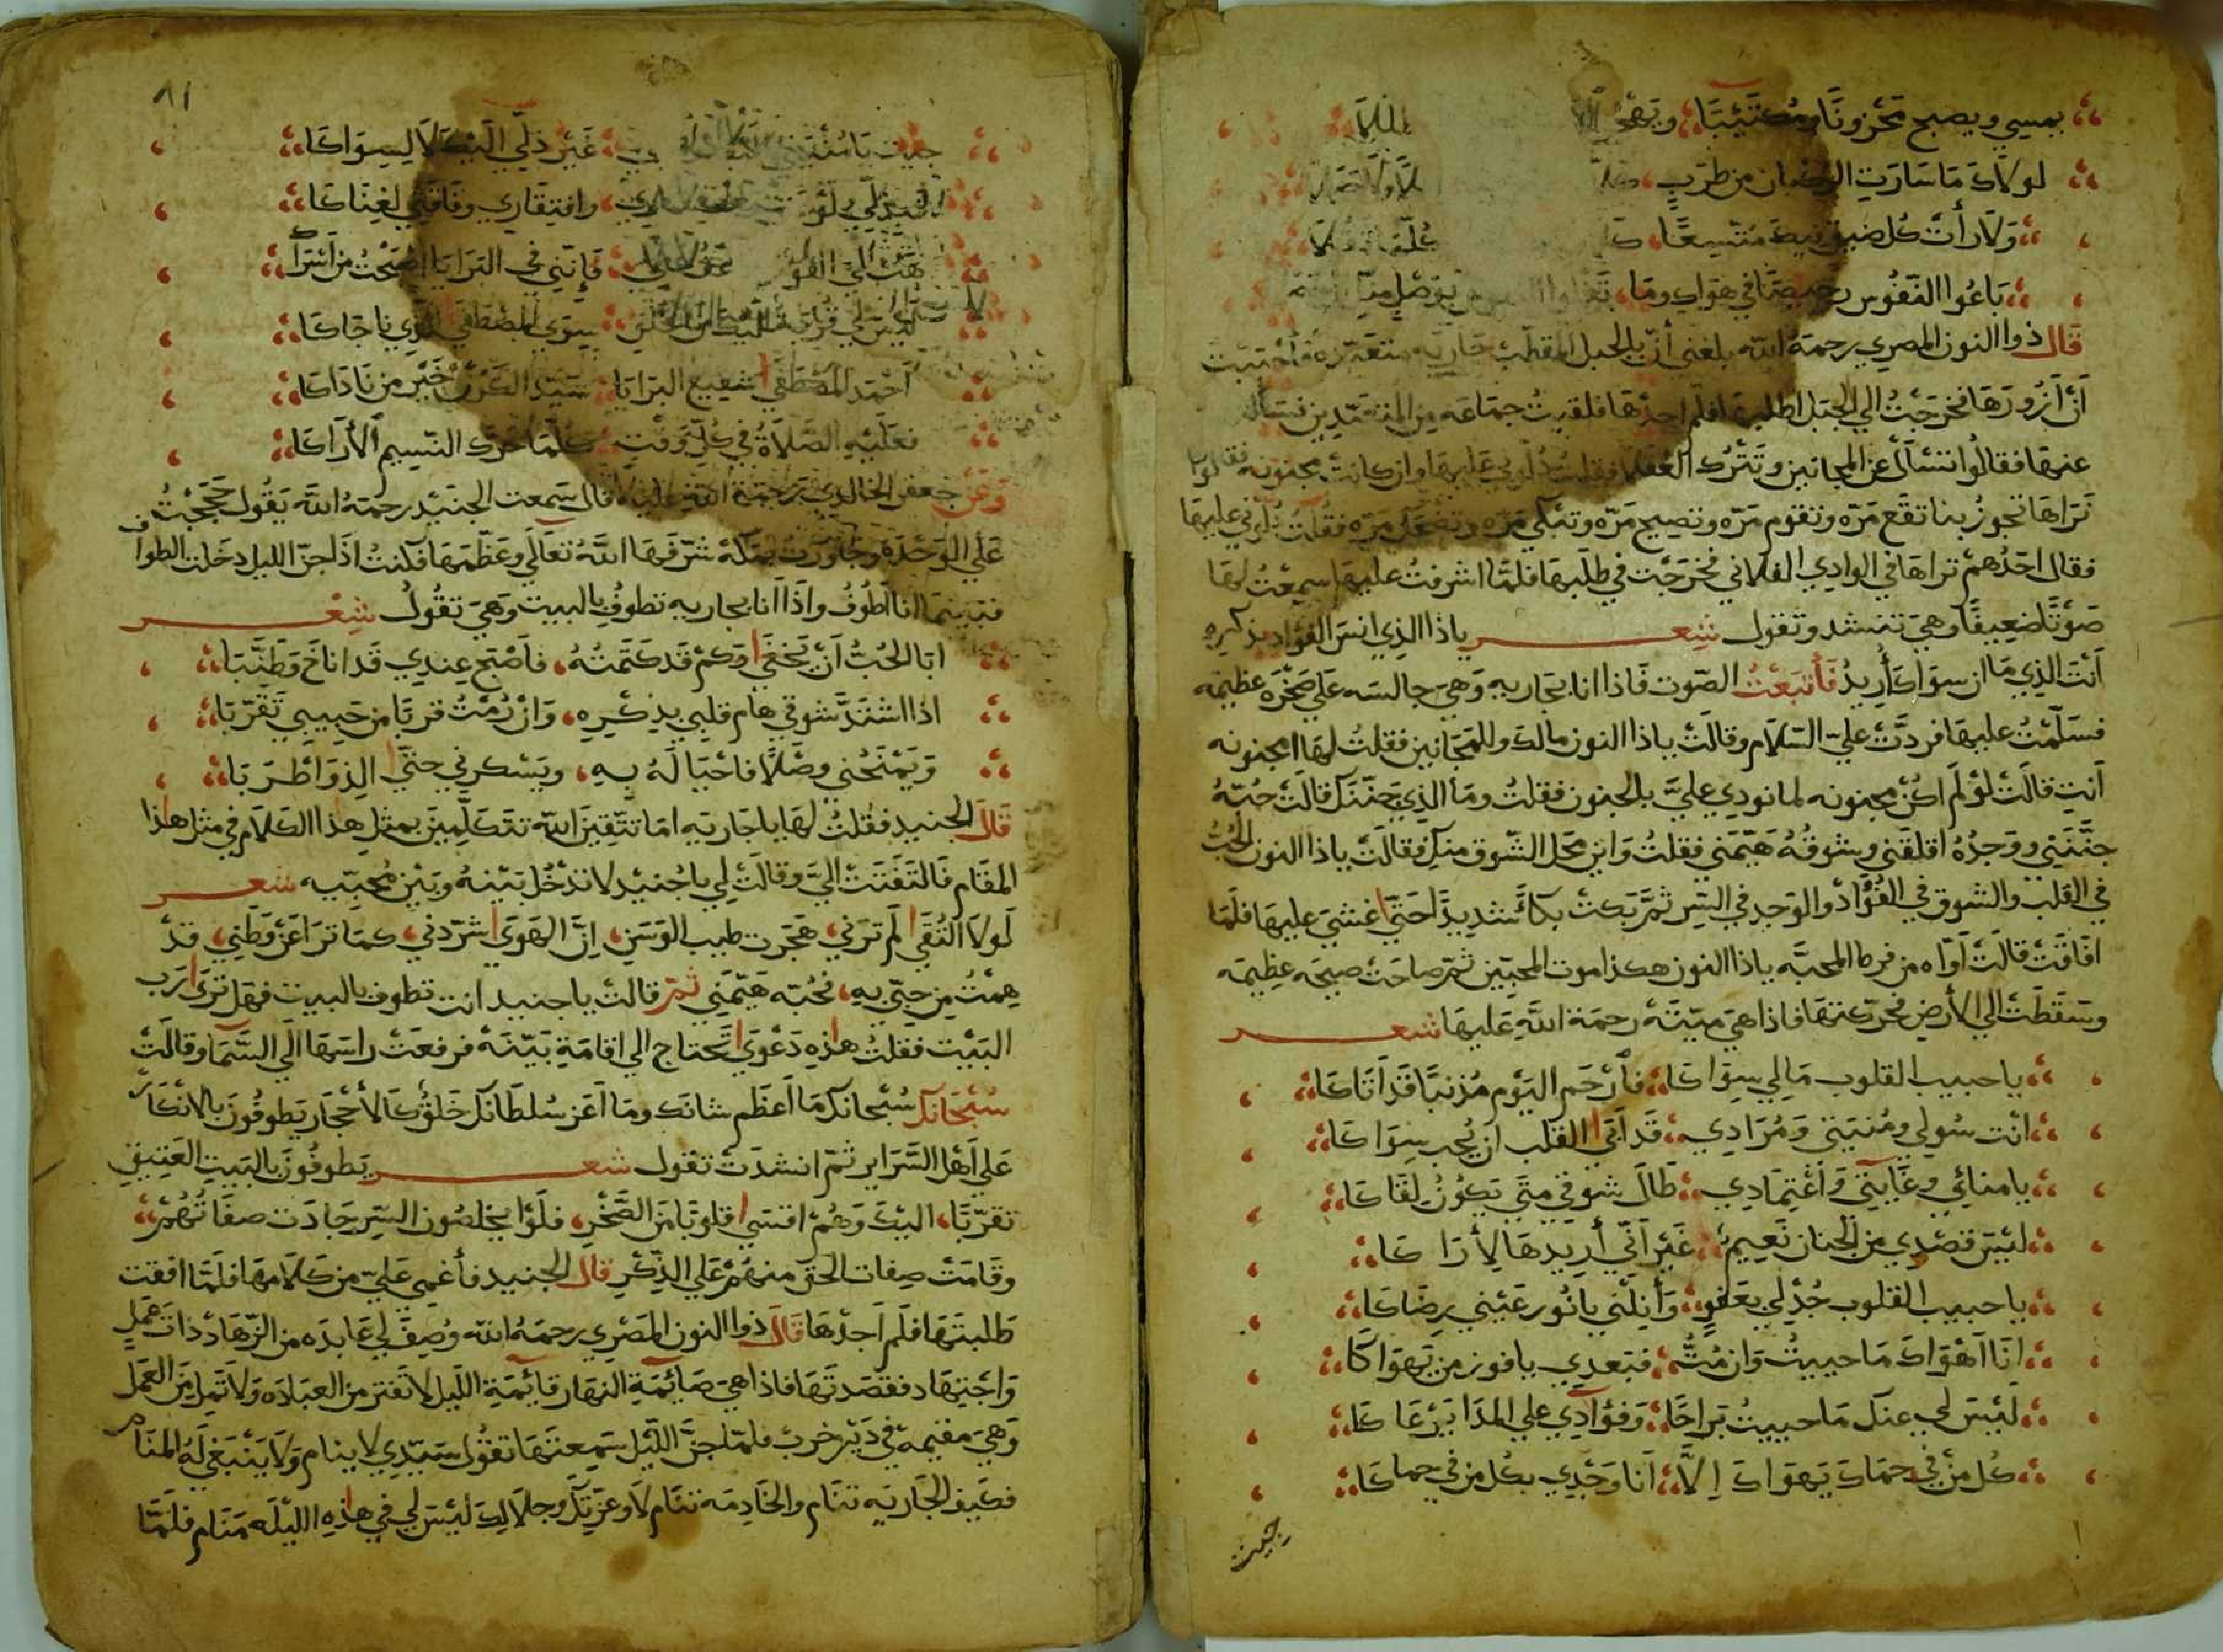 يمسي ويصبح محزونا ومكتئبا
لولاك ما سارت الركبان من طرب
ولا رأت كل ضيق فيك متسعا
باعوا النفوس رخيصا في هواك وما
قال ذوا النون المصري رحمة الله بلغني أن بالجبل المقطم جاريه متعبده فأحببت
أن أزورها فخرجت الي الجبل اطلبها فلم اجدها فلقيت جماعه من المتعبدين فسألت
عنها فقالوا اتسأل عن المجانين وتترك العقلا فقلت دلوني عليها وان كانت مجنونه فقالوا
نراها تجوز بنا تقع مره وتقوم مره وتصيح مره وتبكي مره وتضحك مره فقلت دلوني عليها
فقال احدهم تراها في الوادي الفلاني فخرجت في طلبها فلما اشرفت عليها سمعت لها
صوتا ضعيفا وهي تنشد وتقول شعر ياذا الذي انس الفؤاد بذكره
أنت الذي ما ان سواك أريد فأتبعت الصوت فاذا انا بجاريه وهي جالسه علي صخره عظيمه
فسلمت عليها فردت علي السلام وقالت ياذا النون مالك وللمجانين فقلت لها امجنونه
أنت قالت لو لم اكن مجنونه لما نودي علي بالجنون فقلت وما الذي جننك قالت حبه
جننني ووجده اقلقني وشوقه هيمني فقلت واين محل الشوق منك فقالت ياذا النون الحب
في القلب والشوق في الفؤاد والوجد في السر ثم بكت بكاء شديدا حتي اغشي عليها فلما
افاقت قالت أواه من فرط المحبه ياذا النون هكذا موت المحبين ثم صاحت صيحه عظيمه
وسقطت الي الأرض فحركتها فاذا هي ميته رحمة الله عليها شعر
يا حبيب القلوب مالي سواكا فأرحم اليوم مذنبا قد اتاكا
انت سولي ومنيتي ومرادي قد ابي القلب ان يحب سواكا
يا منائي وغايتي واعتمادي طال شوقي متي يكون لقاكا
ليس قصدي من الجنان نعيم غير أني أريدها لأراكا
يا حبيب القلوب جد لي بعفو وأنلني يا نور عيني رضاكا
انا اهواك ما حييت وان مت فبعدي يا فوز من يهواكا
ليس لي عنك ما حييت براحا وفؤادي علي المدا يرعاكا
كل من في حماك يهواك إلا أنا وجدي بكل من في حماكا
جيت
٨١
جيت يا غير ذلي اليك لا لسواكا
وافتقاري وفاقتي لغناكا
فإنني في البرايا اصبحت من اسراكا
ليس لي سوي المصطفي الذي ناجاكا
أحمد المصطفي شفيع البرايا سيد الكون خير من ناداكا
فعليه الصلاة في كل وقت كلما حرك النسيم الأراكا
وعن جعفر الخالدي رحمة الله عليه قال سمعت الجنيد رحمه الله يقول حججت
علي الوحده وجاورت بمكه شرفها الله تعالي وعظمها فكنت اذا جن الليل دخلت الطواف
فبينما انا اطوف واذا انا بجاريه تطوف بالبيت وهي تقول شعر
ابا الحب أن يخفي وكم قد كتمته فاصبح عندي قد اناخ وطنبا
اذا اشتد شوقي هام قلبي بذكره وان رمت قربا من حبيبي تقربا
ويمنحني وصلا فاحيا له به ويسكرني حتي الذ واطربا
قال الجنيد فقلت لها يا جاريه اما تتقين الله تتكلمين بمثل هذا الكلام في مثل هذا
المقام فالتفتت الي وقالت لي يا جنيد لا تدخل بينه وبين محبيه شعر
لولا التقي لم ترني هجرت طيب الوسن ان الهوي شردني كما ترا عن وطني قد
همت من حبي به فحبه هيمني ثم قالت يا جنيد انت تطوف بالبيت فهل تري رب
البيت فقلت هذه دعوي تحتاج الي اقامة بينه فرفعت راسها الي السما وقالت
سبحانك سبحانك ما أعظم شانك وما أعز سلطانك خلق كالأحجار يطوفون بالانكار
علي أهل السراير ثم انشدت تقول شعر يطوفون بالبيت العتيق
تقربا اليك وهم اقسي قلوبا من الصخر فلو يخلصون السر جادت صفاتهم
وقامت صفات الحق منهم علي الذكر قال الجنيد فأغمي علي من كلامها فلما افقت
طلبتها فلم أجدها قال ذوا النون المصري رحمه الله وصف لي عابده من الزهاد ذات عمل
واجتهاد فقصدتها فاذا هي صائمة النهار قائمة الليل لا تفتر من العباده ولا تمل من العمل
وهي مقيمه في دير خرب فلما جن الليل سمعتها تقول سيدي لا ينام ولا ينبغي له المنام
فكيف الجاريه تنام والخادمه تنام لا وعزتك وجلالك ليس لي في هذه الليله منام فلما